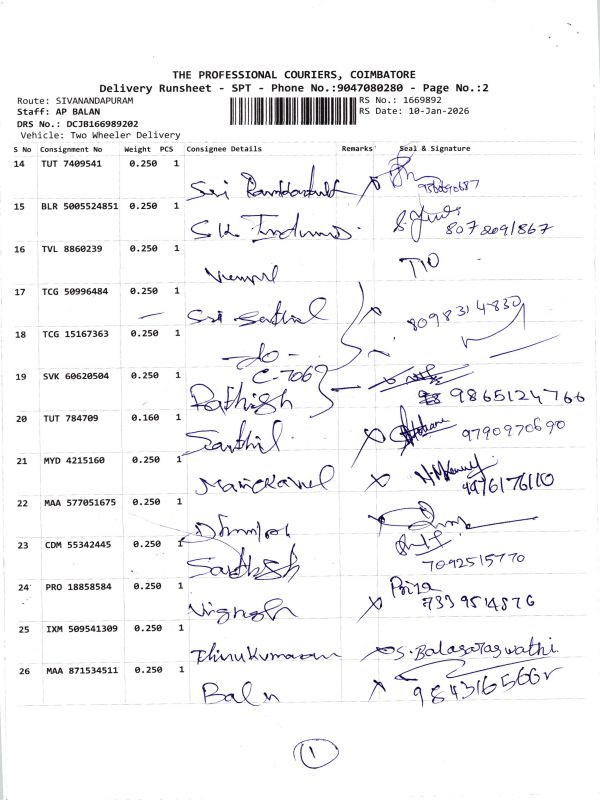 THE PROFESSIONAL COURIERS, COIMBATORE
Delivery Runsheet - SPT - Phone No.:9047080280 - Page No.:2
Route: SIVANANDAPURAM
RS No.: 1669892
Staff: AP BALAN
RS Date: 10-Jan-2026
DRS No.: DCJB166989202
Vehicle: Two Wheeler Delivery
S No Consignment No Weight PCS Consignee Details Remarks Seal & Signature
14 TUT 7409541 0.250 1
Sri
15 BLR 5005524851 0.250 1
S.K.
8072091867
16 TVL 8860239 0.250 1
17 TCG 50996484 0.250 1
Sri Sathil
8098314830
18 TCG 15167363 0.250 1
- do -
C-7069
19 SVK 60620504 0.250 1
Pathish
9865124766
20 TUT 784709 0.160 1
Santhil.
9790970690
21 MYD 4215160 0.250 1
Manickavel
22 MAA 577051675 0.250 1
23 CDM 55342445 0.250 1
Sathish
7092515770
24 PRO 18858584 0.250 1
Priya
Vignesh
7339514876
25 IXM 509541309 0.250 1
Thirukumaran S. Balasaraswathi.
26 MAA 871534511 0.250 1
Baln
1